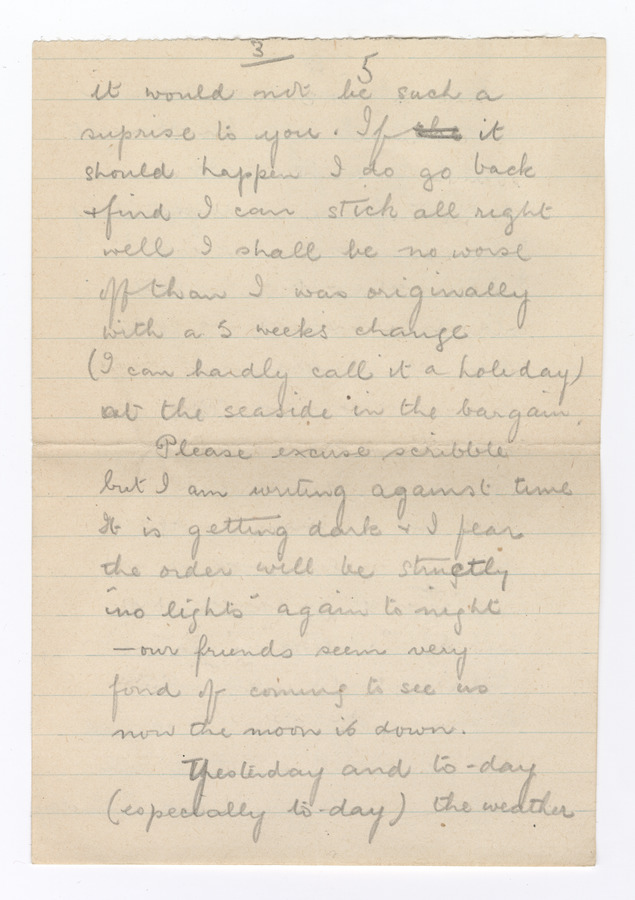 3
5
it would not be such a
suprise to you. If it
should happen I do go back
+ find I can stick all right
well I shall be no worse
off than I was originally
with a 5 weeks change
(I can hardly call it a holiday)
at the seaside in the bargain.
Please excuse scribble
but I am writing against time
It is getting dark + I fear
the order will be strictly
"no lights" again to night
—our friends seem very
fond of coming to see us
now the moon is down.
Yesterday and to-day
(especially to-day) the weather